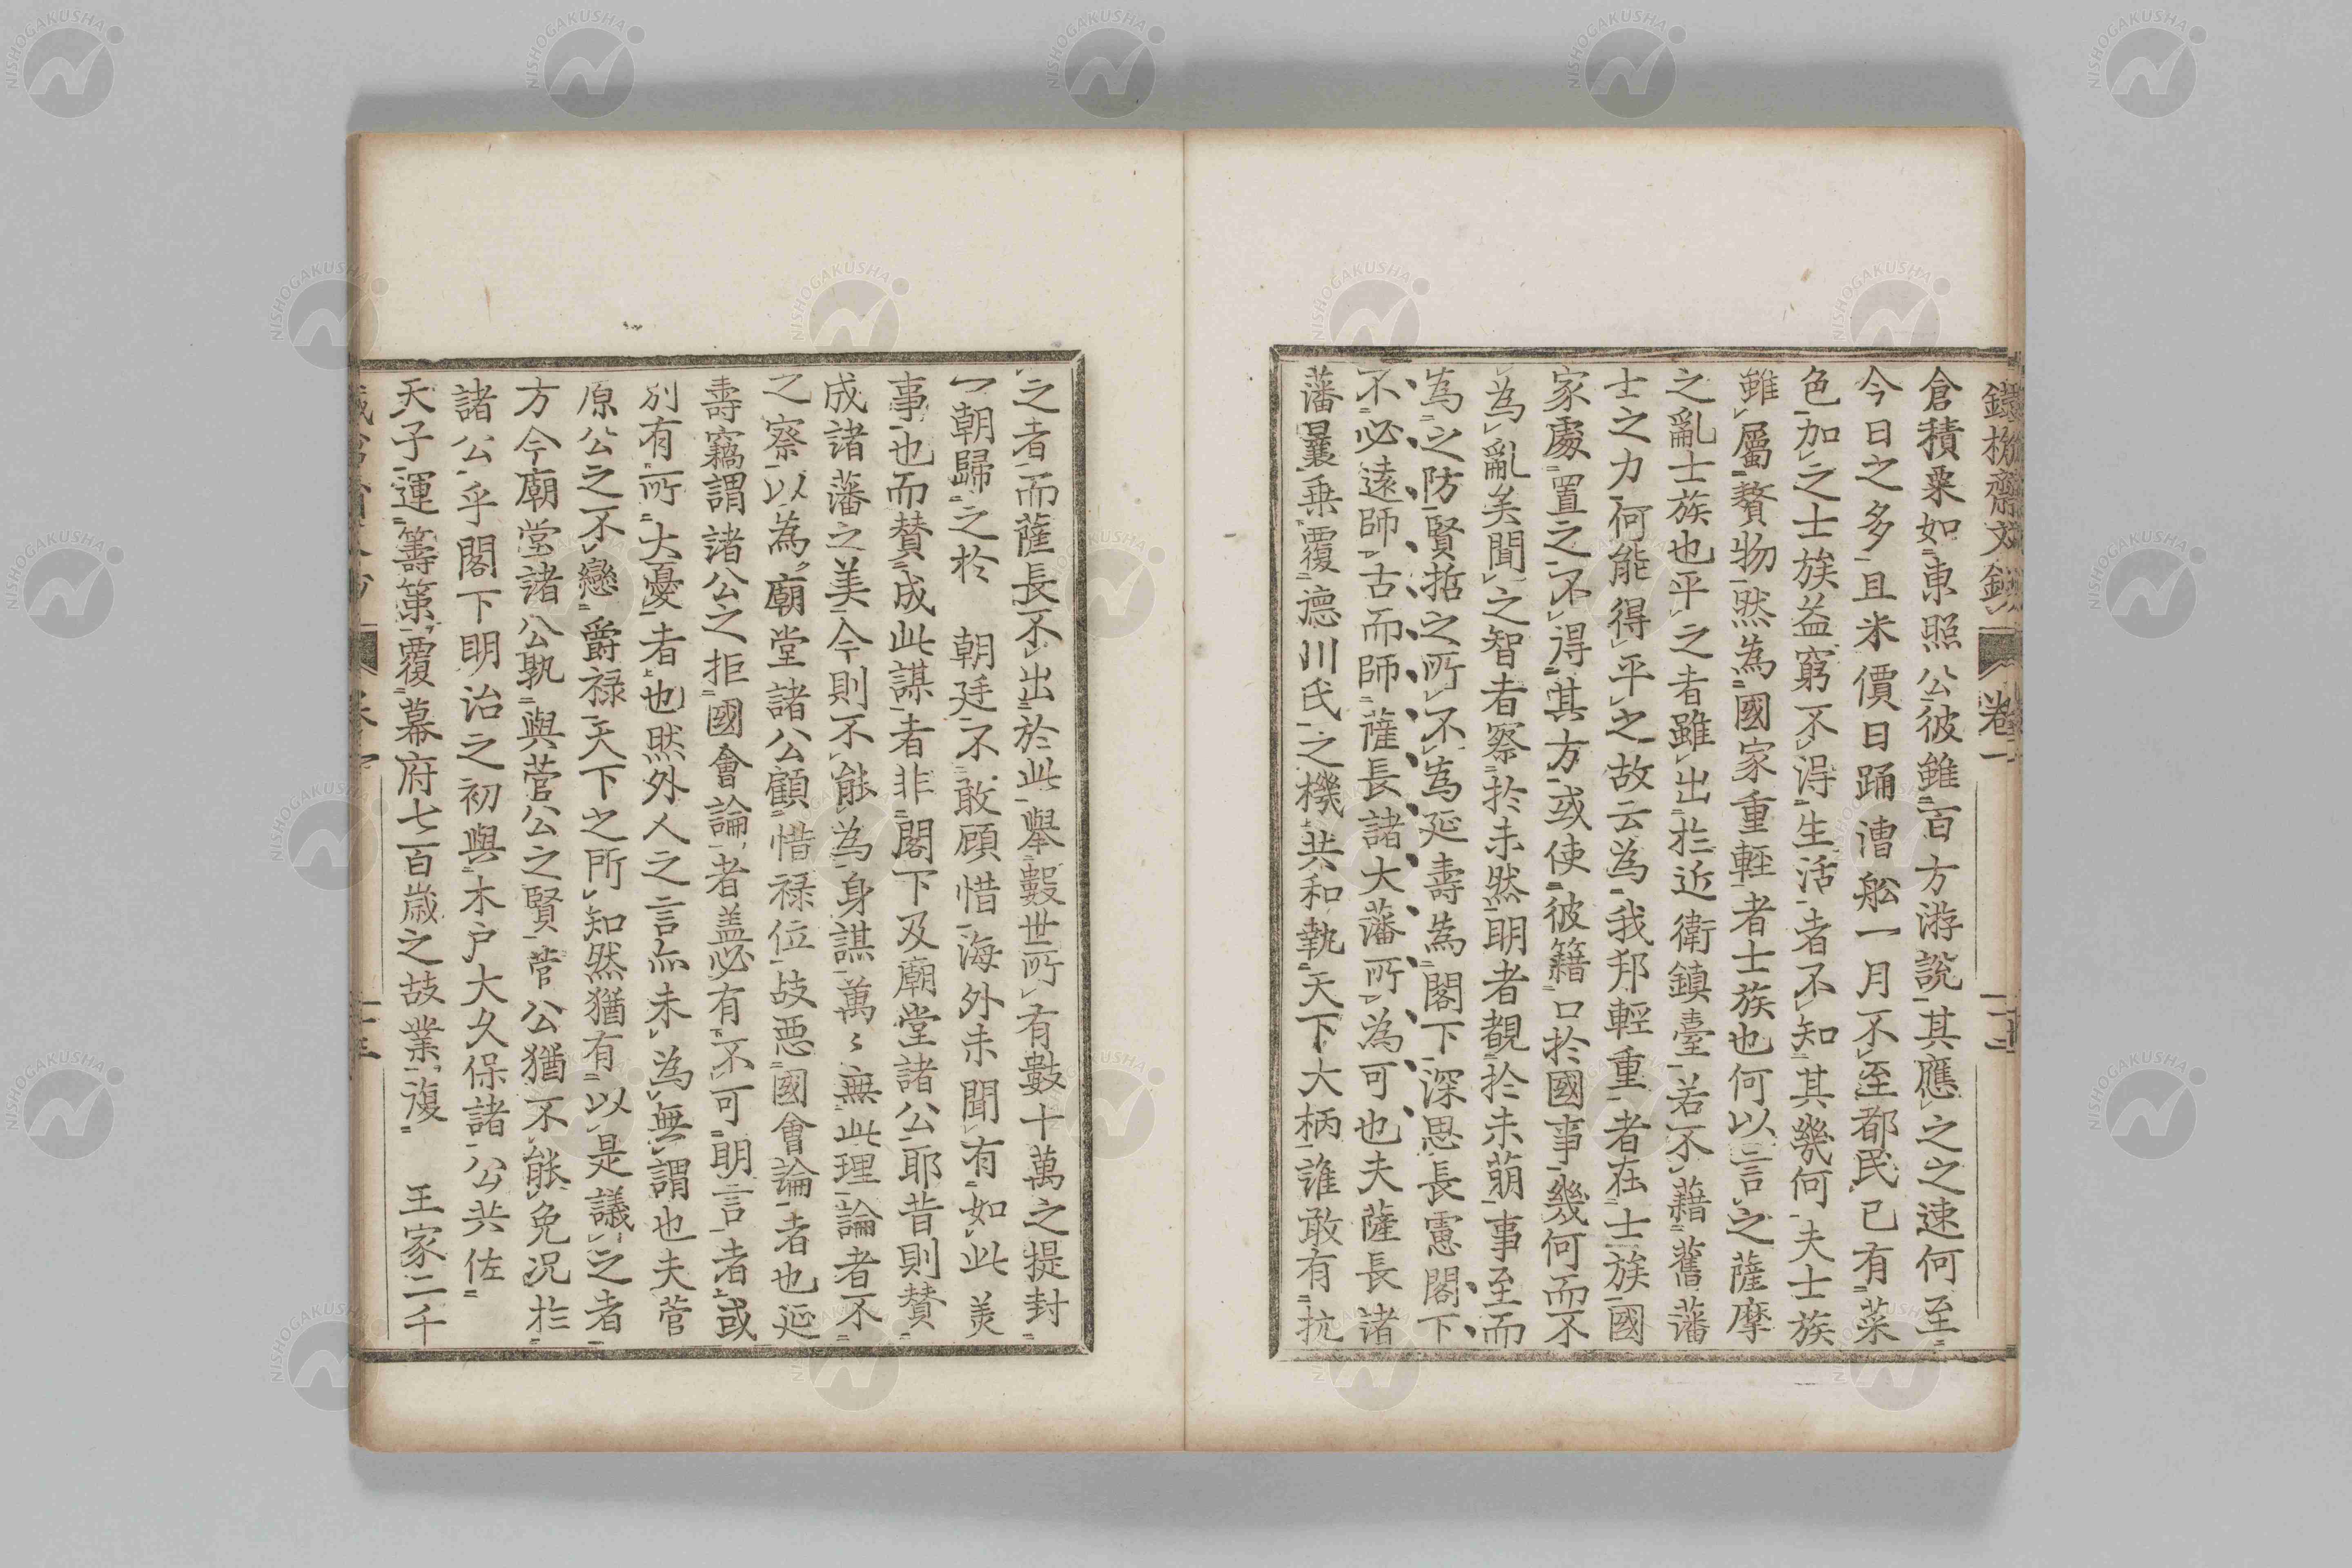 倉積粟如東照公彼雖百方游説其應之之速何至
今日之多且米價日踊漕舩一月不至都民已有菜
色加之士族益窮不得生活者不知其幾何夫士族
雖屬贅物然為國家重輕者士族也何以言之薩摩
之亂士族也平之者雖出於近衛鎮臺若不藉舊藩
士之力何能得平之故云為我邦輕重者在士族國
家處置之不得其方或使彼籍口於國事幾何而不
為亂羙聞之智者察於未然明者覩於未萌事至而
為之防賢哲之所不為延壽為閣下深思長慮閣下
不必遠師古而師薩長諸大藩所為可也夫薩長諸
藩曩乗覆德川氏之機共和執天下大柄誰敢有抗
之者而薩長不出於此舉數世所有數十萬之提封
一朝歸之於　朝廷不敢顧惜海外未聞有如此羙
事也而賛成此謀者非閣下及廟堂諸公耶昔則賛
成諸藩之美今則不能為身謀萬〻無此理論者不
之察以為廟堂諸公顧惜禄位故惡國會論者也延
壽竊謂諸公之拒國會論者盖必有不可明言者或
別有所大憂者也然外人之言亦未為無謂也夫菅
原公之不戀爵禄天下之所知然猶有以是議之者
方今廟堂諸公孰與菅公之賢菅公猶不能免况於
諸公乎閣下明治之初與木户大久保諸公共佐
天子運籌策覆幕府七百歳之故業復　王家二千
鐵槍齋文鈔　卷一　二十二